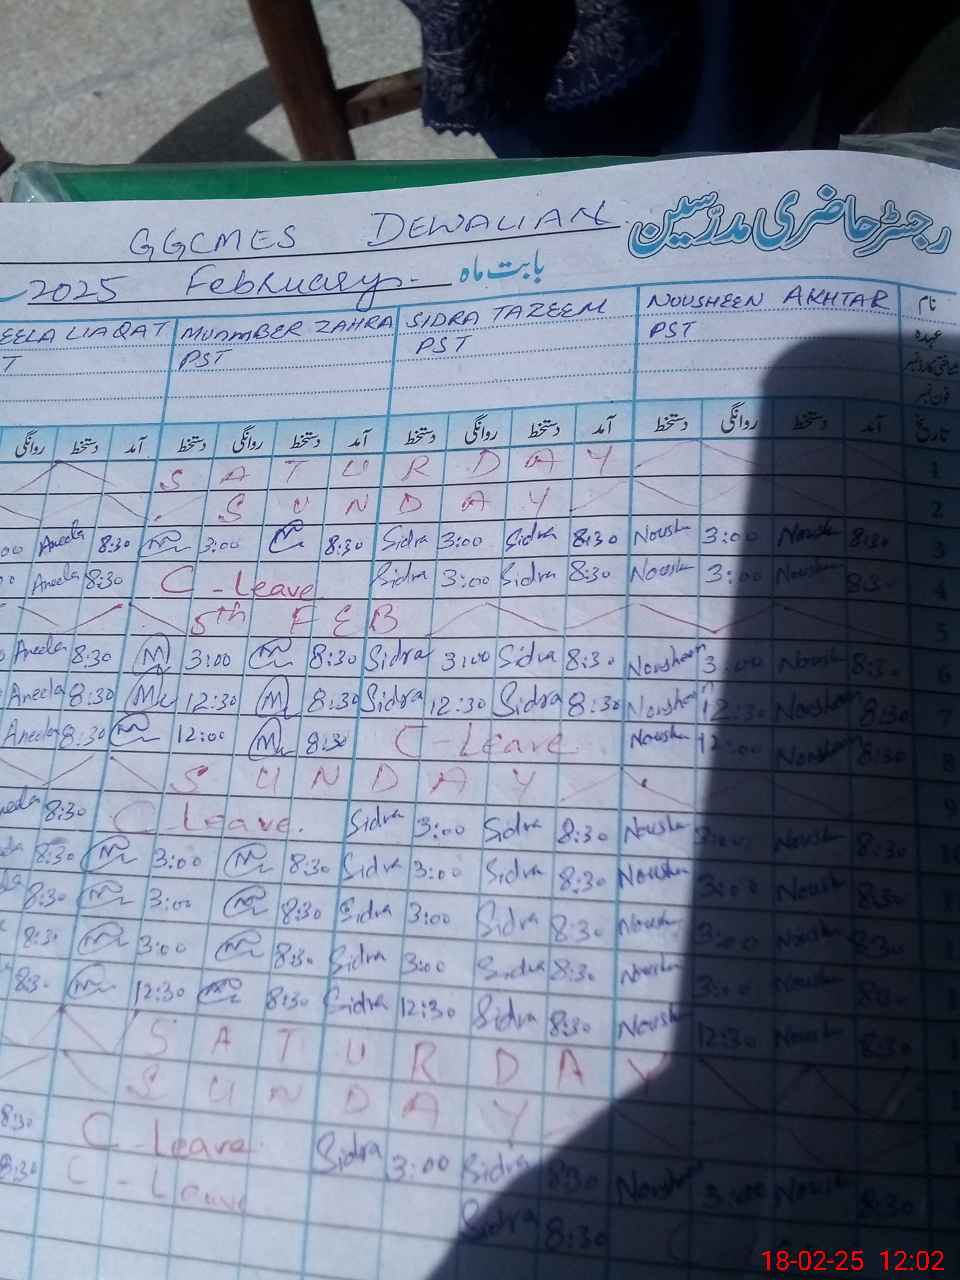 GGCMES DEWALIAN رجسٹر حاضری مدرسین
2025 February بابت ماہ
EELA LIAQAT MUAMBER ZAHRA SIDRA TAZEEM NOUSHEEN AKHTAR نام
T PST PST PST عہدہ
فون نمبر
روانگی دستخط آمد دستخط روانگی دستخط آمد دستخط روانگی دستخط آمد دستخط روانگی دستخط آمد تاریخ
S A T U R D A Y 1
S U N D A Y 2
00 Aneela 8:30 3:00 8:30 Sidra 3:00 Sidra 8:30 Noush 3:00 Noush 8:30 3
Aneela 8:30 C-Leave Sidra 3:00 Sidra 8:30 Noush 3:00 Noush 8:30 4
5th FEB 5
Aneela 8:30 M 3:00 8:30 Sidra 3:00 Sidra 8:30 Nousheen 3:00 Noush 8:30 6
Aneela 8:30 12:30 M 8:30 Sidra 12:30 Sidra 8:30 Nousheen 12:30 Nousheen 8:30 7
Aneela 8:30 12:00 8:30 C-Leave Noush 12:00 Nousheen 8:30 8
S U N D A Y 9
8:30 C Leave. Sidra 3:00 Sidra 8:30 Noush 3:00 Noush 8:30
8:30 3:00 8:30 Sidra 3:00 Sidra 8:30 Noush 3:00 Noush 8:30
8:30 3:00 8:30 Sidra 3:00 Sidra 8:30 Noush 3:00 Noush 8:30
8:30 3:00 8:30 Sidra 3:00 Sidra 8:30 Noush 3:00 Noush 8:30
8:30 12:30 8:30 Sidra 12:30 Sidra 8:30 Noush 12:30 Noush 8:30
S A T U R D A Y
S U N D A Y
8:30 C Leave Sidra 3:00 Sidra 8:30 Noush 3:00 Noush 8:30
8:30 C-Leave Sidra 8:30
18-02-25 12:02